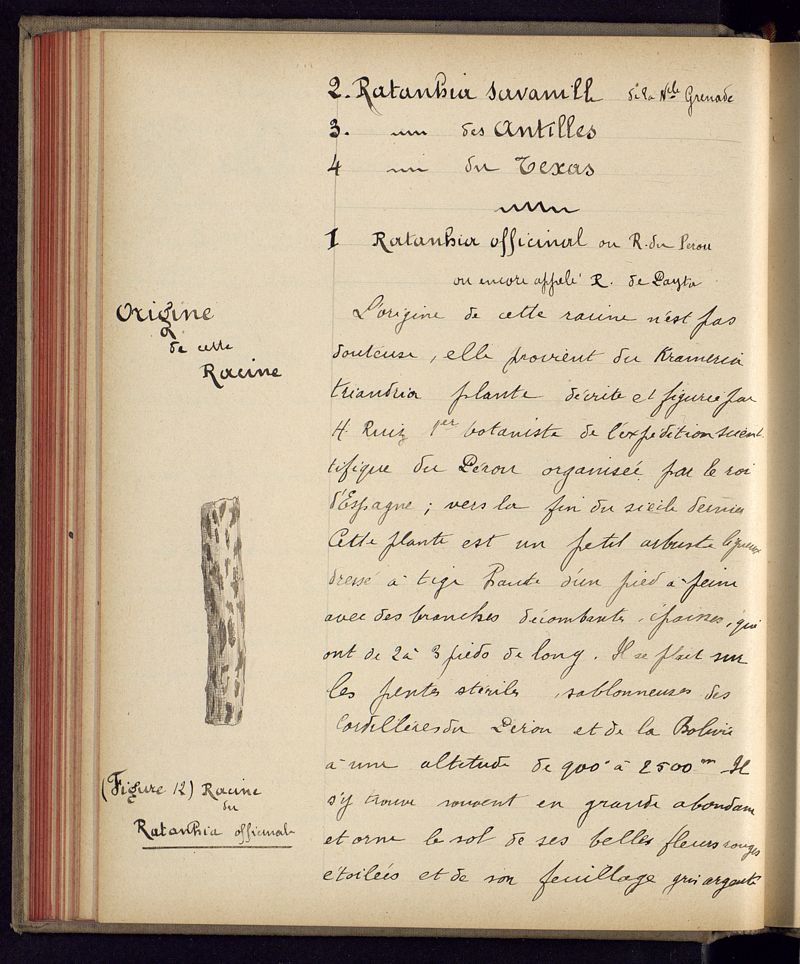 2. Ratanhia savanille de la Nlle Grenade
3. — des Antilles
4 — du Texas
1 Ratanhia officinal ou R. du Perou
ou encore appelé R. de Payta
Origine
de cette
Racine
L'origine de cette racine n'est pas
douteuse, elle provient du Krameria
triandria plante décrite et figurée par
H. Ruiz 1er botaniste de l'expédition scien
tifique du Perou organisée par le roi
d'Espagne ; vers la fin du siècle dernier
Cette plante est un petit arbuste ligneux
dressé à tige haute d'un pied à peine
avec des branches décombantes, épaisses, qui
ont de 2 à 3 pieds de long. Il se plait sur
les pentes stériles, sablonneuses des
Cordillères du Perou et de la Bolivie
à une altitude de 900 à 2500m Il
s'y trouve souvent en grande abondance
et orne le sol de ses belles fleurs rouges
étoilées et de son feuillage gris argenté
(Figure 12) Racine
du
Ratanhia officinale